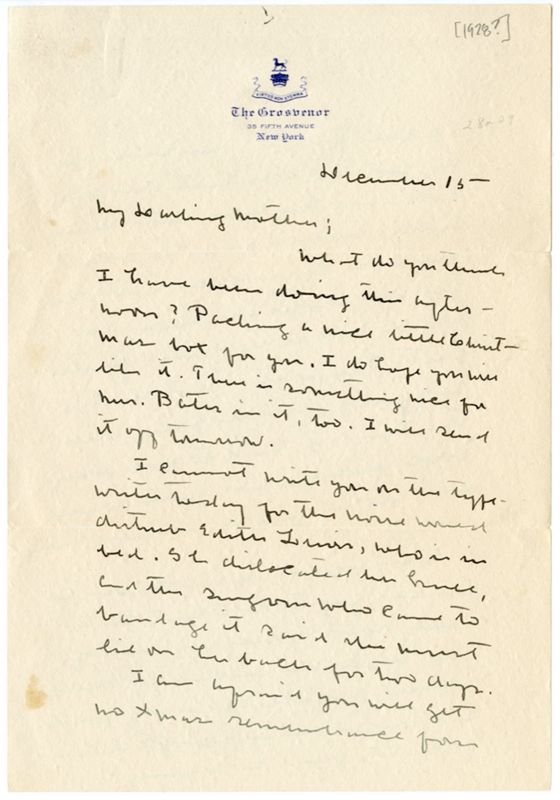 [1928?]
VIRTUS NON STEMMA
The Grosvenor
35 FIFTH AVENUE
New York
December 15
My Darling Mother;
What do you think
I have been doing this after-
noon? Packing a nice little Christ-
mas box for you. I do hope you will
like it. There is something nice for
Mrs. Bates in it, too. I will send
it off tomorrow.
I cannot write you on the type-
writer today for the noise would
disturb Edith Lewis, who is in
bed. She dislocated her knee,
and the surgeon who came to
bandage it said she must
lie on her back for two days.
I am afraid you will get
no Xmas remembrance from